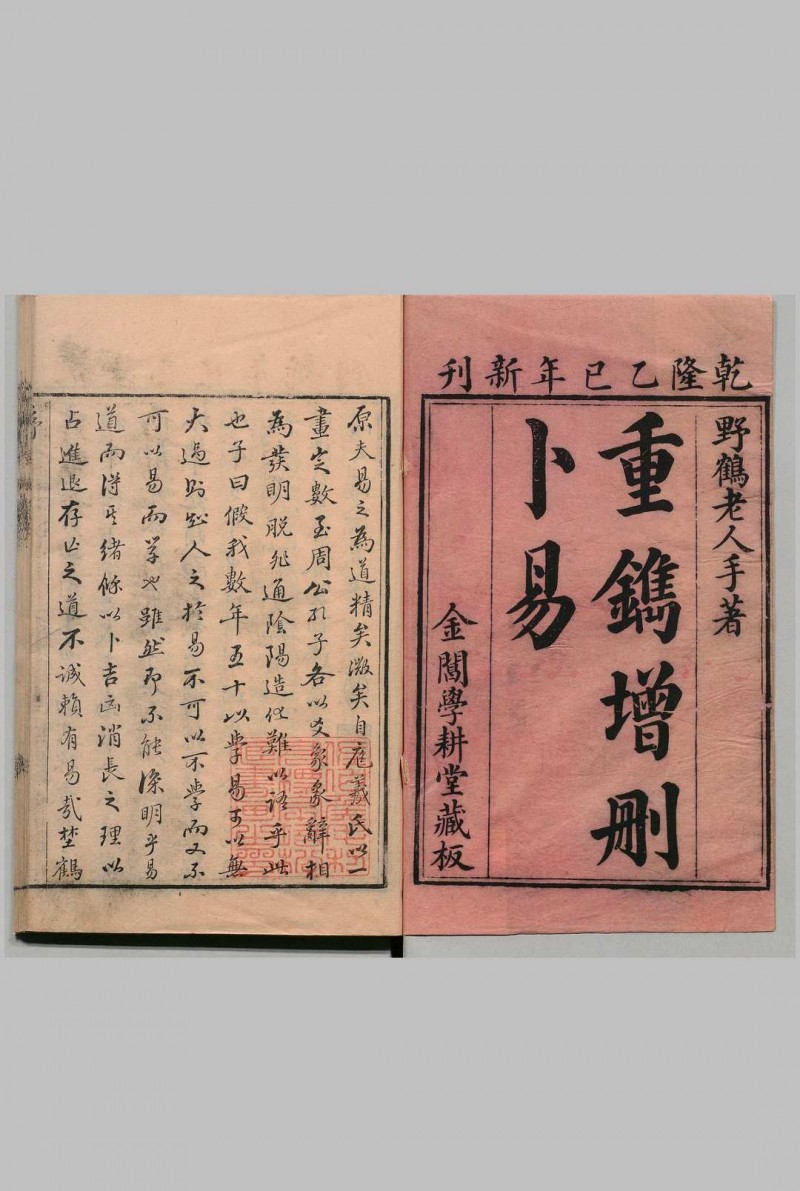 乾隆乙巳年新刊
野鶴老人手著
重鐫增刪
卜易
金閶學耕堂藏板
原夫易之為道精矣微矣自庖羲氏以一
畫定數至周公孔子各以爻象彖辭相
為發明脫非通陰陽造化難以語乎此
也子曰假我數年五十以學易可以無
大過則知人之於易不可以不學而又不
可以易而學也雖然即不能深明乎易
道而得其緒餘以卜吉凶消長之理以
占進退存亡之道不誠賴有易哉埜鶴
序